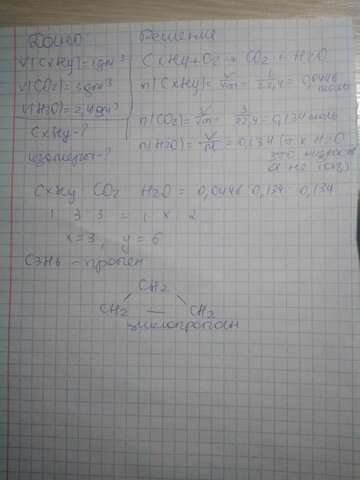 Дано
Решение
V(CxHy)=1дм³
V(CO2)=3дм³
V(H2O)=2,4дм³
CxHy-?
изомеры-?
CxHy+O2 → CO2 + H2O
n(CxHy)= V/Vm = 1/22,4 = 0,0446 моль
n(CO2)= V/Vm = 3/22,4 = 0,134 моль
n(H2O)= = 0,134 (т.к H2O
это жидкость
а не газ)
CxHy CO2 H2O = 0,0446 0,134 0,134
1 3 3 = 1 x 2
x=3, y=6
C3H6 - пропен
CH2
CH2 — CH2
циклопропан